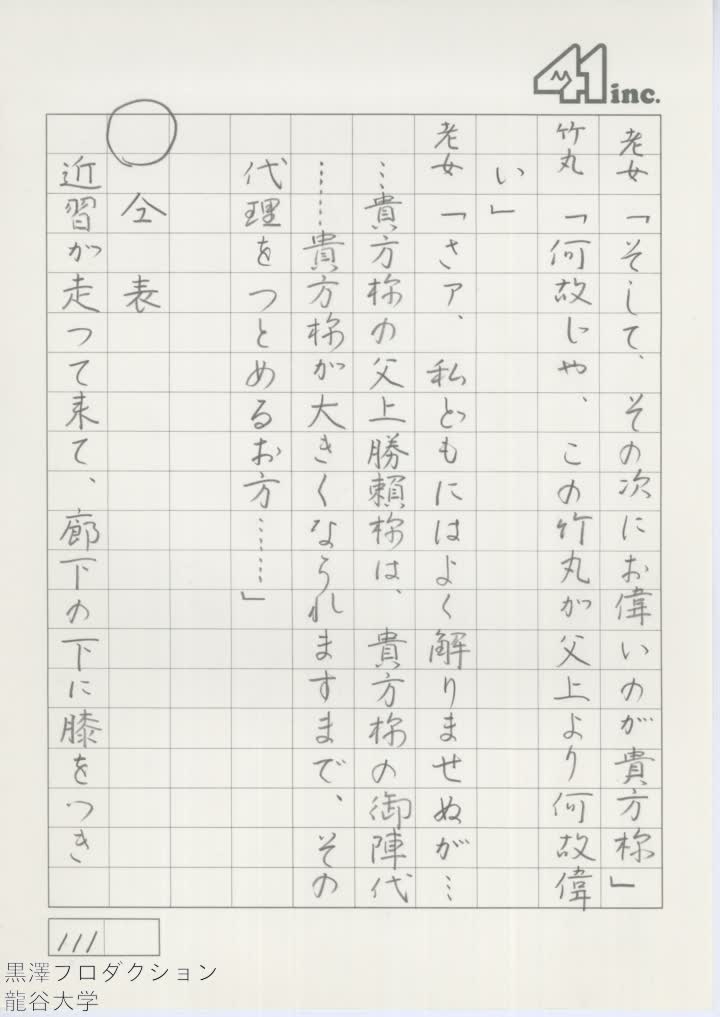 41 inc.
老女「そして、その次にお偉いのが貴方様」
竹丸「何故じや、この竹丸が父上より何故偉
い」
老女「さァ、私どもにはよく解りませぬが…
…貴方様の父上勝頼様は、貴方様の御陣代
……貴方様が大きくなられますまで、その
代理をつとめるお方……」
○ 仝 表
近習が走つて来て、廊下の下に膝をつき
111
黒澤プロダクション
龍谷大学